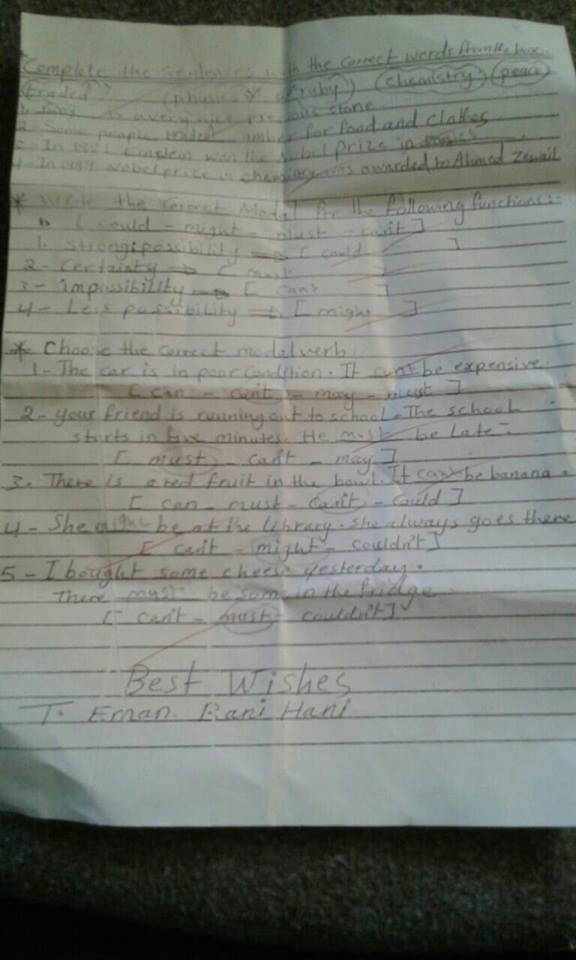 Complete the sentences with the correct words from the box
(traded) (physics) (ruby) (chemistry) (peace)
1. Ruby is a very nice precious stone
2. Some people traded amber for food and clothes
3- In 1921 Einstein won the Nobel prize in
4- In 1999 Nobel prize in chemistry was awarded to Ahmed Zewail
* Write the correct Modal for the following functions:-
[ could - might - must - can't ]
1. strong possibility → [ could ]
2- Certainty → [ must ]
3- Impossibility → [ can't ]
4- Less possibility → [ might ]
* Choose the correct modal verb
1- The car is in poor condition. It can't be expensive.
[ can - can't - may - must ]
2- your friend is running out to school. The school
starts in five minutes. He must be late-
[ must - can't - may ]
3. There is a red fruit in the bowl. It can't be banana.
[ can - must - can't - could ]
4- She might be at the library. She always goes there
[ can't - might - couldn't ]
5- I bought some cheese yesterday.
There must be some in the fridge.
[ can't - must - couldn't ]
Best Wishes
T. Eman. Bani Hani